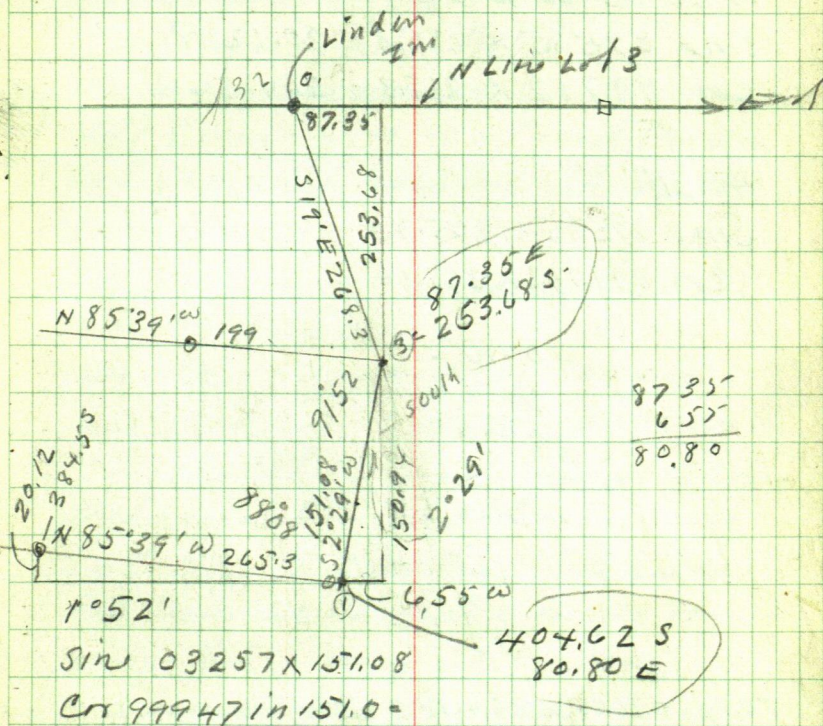 Linden
Im
N Line Lot 3
132
0.
East
87.35
S 19° E 268.3
253.68
87.35 E
253.68 S.
N 85°39' W
199
③
South
91°52
87 35
6 55
80.80
20.12
384.55
88°08
151.08
S 2°29' W
150.94
2°29'
N 85°39' W
265.3
①
6.55 W
1°52'
404.62 S
80.80 E
Sin 03257 X 151.08
Cos 99947 in 151.0=